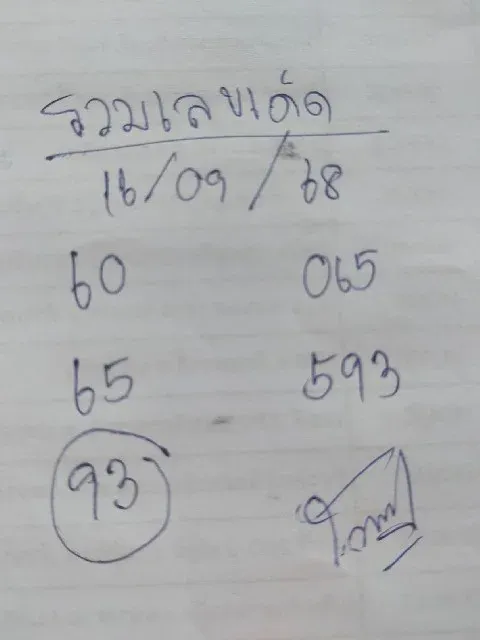 รวมเลขเด็ด
16/09/68
60 065
65 593
93